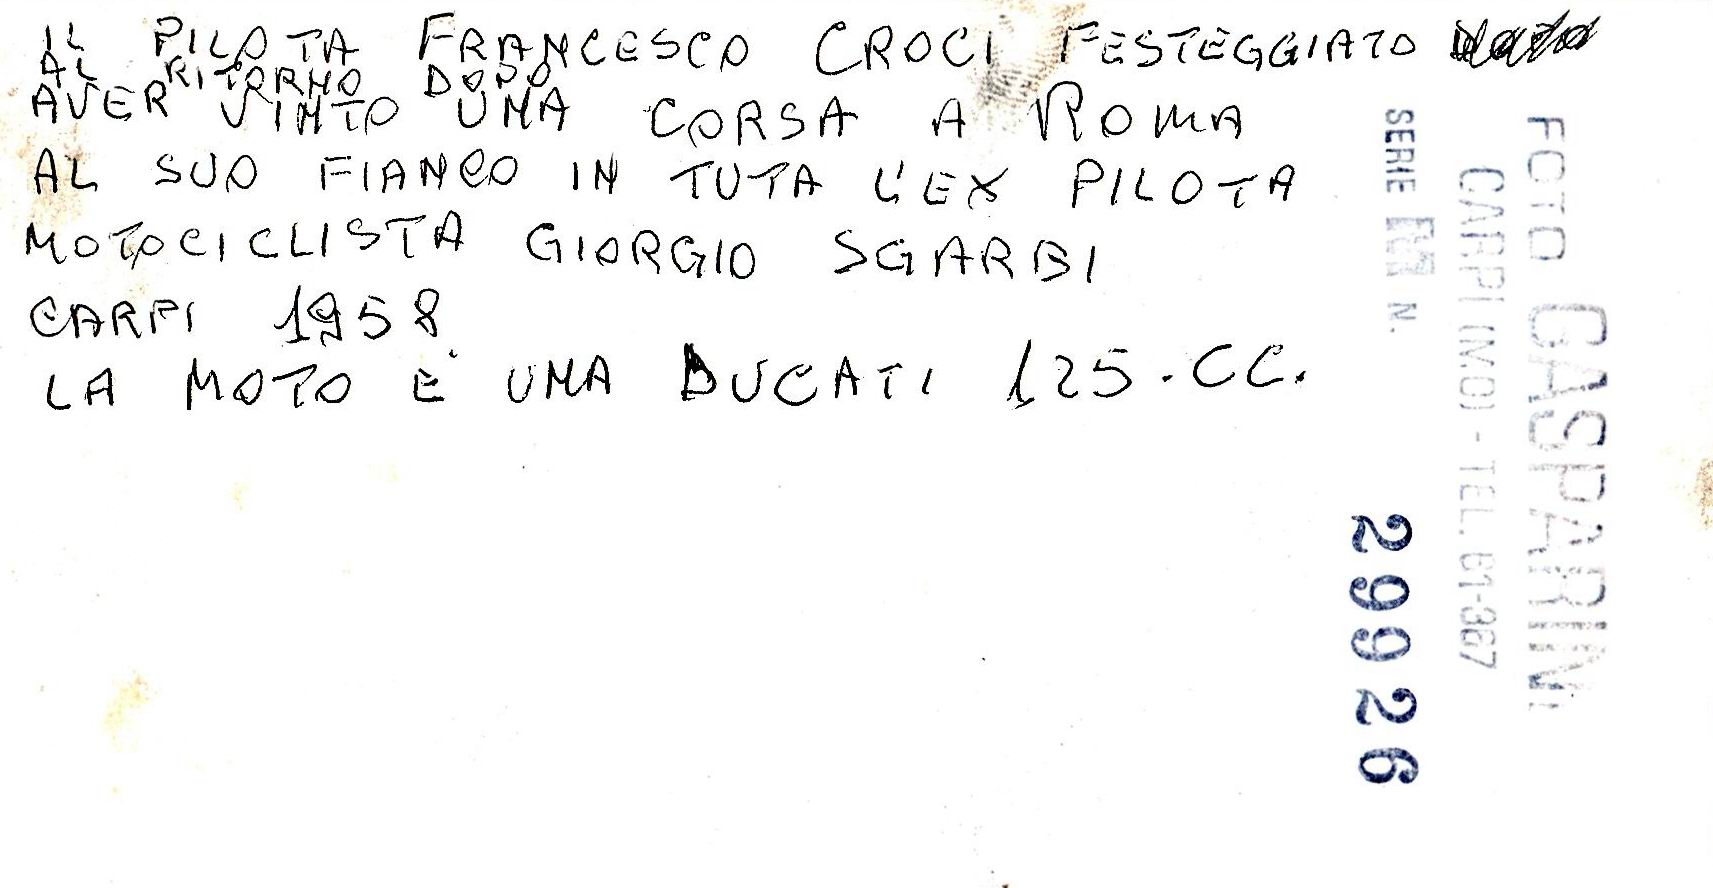 IL PILOTA FRANCESCO CROCI FESTEGGIATO
AL RITORNO DOPO
AVER VINTO UNA CORSA A ROMA
AL SUO FIANCO IN TUTA L'EX PILOTA
MOTOCICLISTA GIORGIO SGARBI
CARPI 1958
LA MOTO È UNA DUCATI 125.CC.
FOTO GASPARINI
CARPI (MO) - TEL. 61-367
SERIE N.
29926